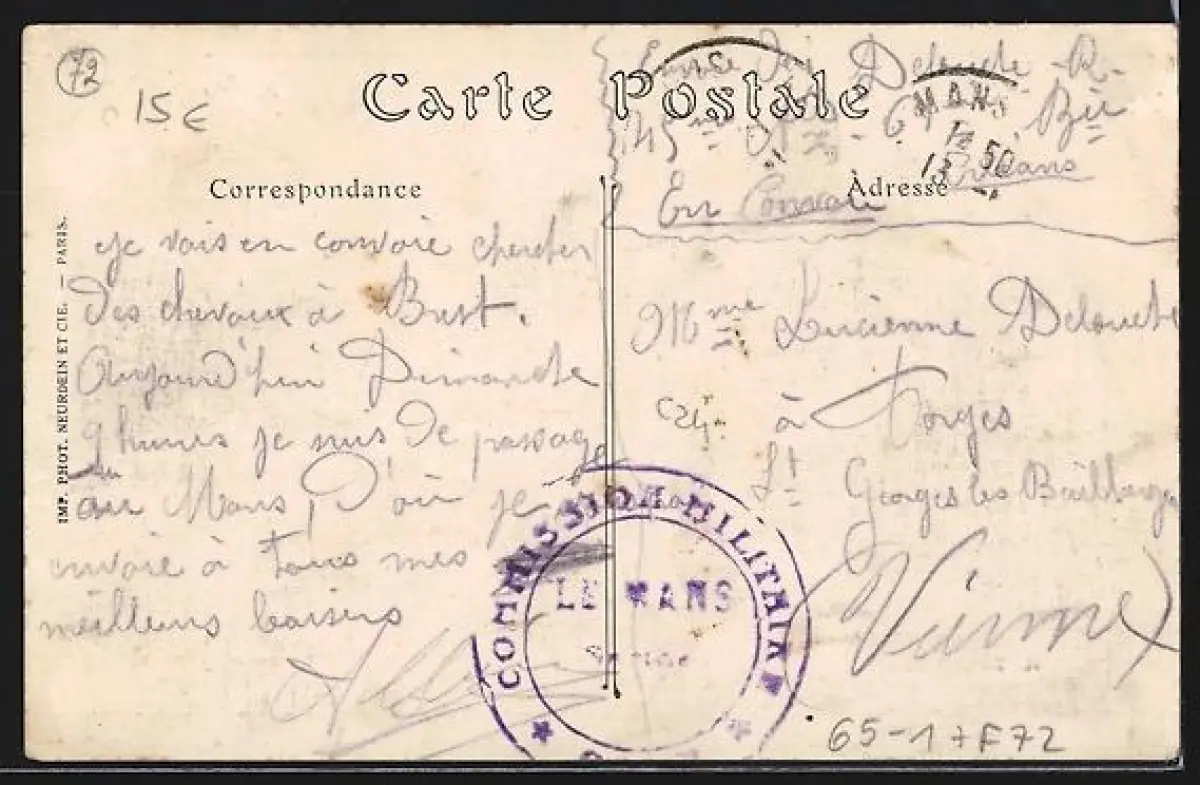 72
15 €
Carte Postale
Correspondance
Adresse
Delouche
MANS
13 50
Orléans
En
IMP. PHOT. NEURDEIN ET CIE. — PARIS.
Je vais en convoie chercher
des chevaux à Brest.
Aujourd'hui Dimanche
9 heures je suis de passage
au Mans, d'où je
envoie à tous mes
meilleurs baisers
Mme Lucienne Delouche
à Forges
St Georges les Baillargeaux
Vienne
COMMISSION MILITAIRE
LE MANS
65-17F72